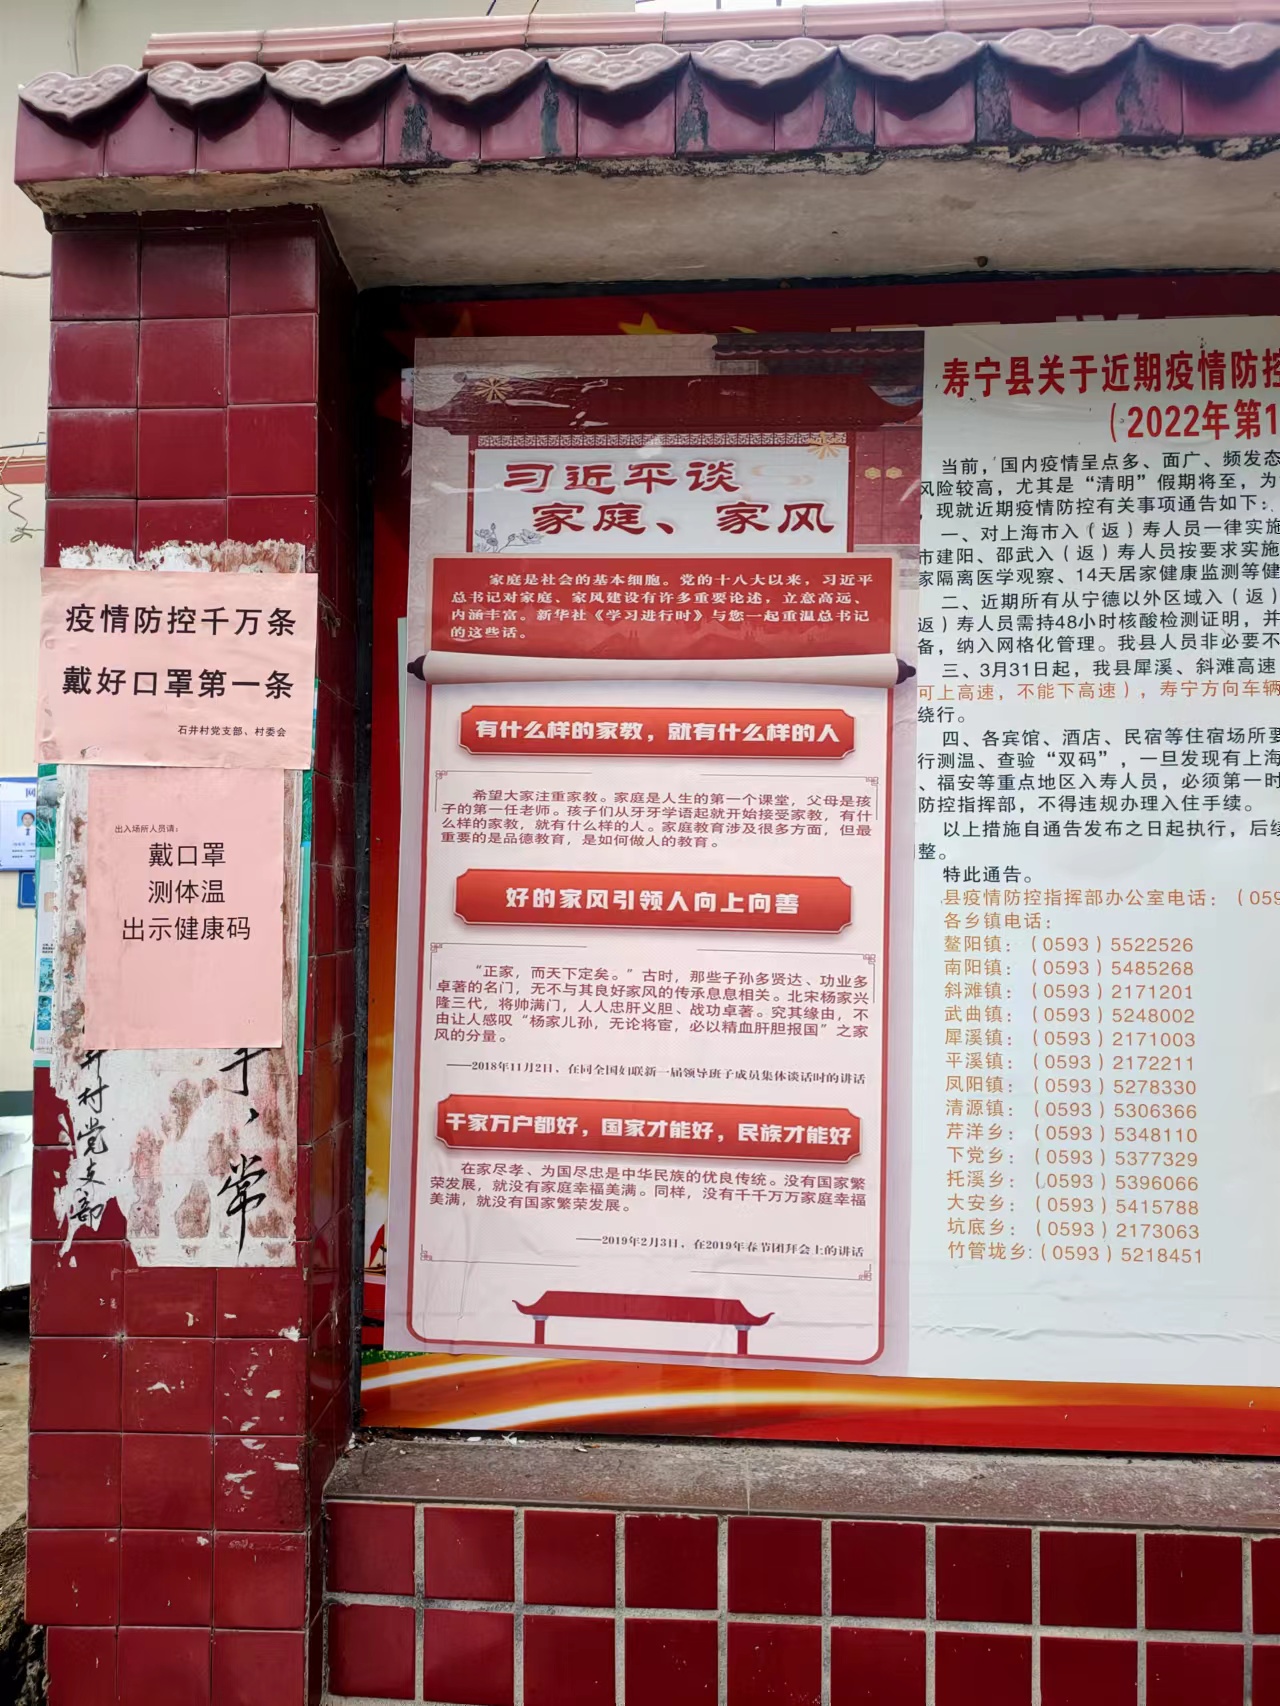 疫情防控千万条
戴好口罩第一条
石井村党支部、村委会
出入场所人员请：
戴口罩
测体温
出示健康码
井村党支部
常
习近平谈
家庭、家风
家庭是社会的基本细胞。党的十八大以来，习近平
总书记对家庭、家风建设有许多重要论述，立意高远、
内涵丰富。新华社《学习进行时》与您一起重温总书记
的这些话。
有什么样的家教，就有什么样的人
希望大家注重家教。家庭是人生的第一个课堂，父母是孩
子的第一任老师。孩子们从牙牙学语起就开始接受家教，有什
么样的家教，就有什么样的人。家庭教育涉及很多方面，但最
重要的是品德教育，是如何做人的教育。
好的家风引领人向上向善
“正家，而天下定矣。”古时，那些子孙多贤达、功业多
卓著的名门，无不与其良好家风的传承息息相关。北宋杨家兴
隆三代，将帅满门，人人忠肝义胆、战功卓著。究其缘由，不
由让人感叹“杨家儿孙，无论将宦，必以精血肝胆报国”之家
风的分量。
——2018年11月2日，在同全国妇联新一届领导班子成员集体谈话时的讲话
千家万户都好，国家才能好，民族才能好
在家尽孝、为国尽忠是中华民族的优良传统。没有国家繁
荣发展，就没有家庭幸福美满。同样，没有千千万万家庭幸福
美满，就没有国家繁荣发展。
——2019年2月3日，在2019年春节团拜会上的讲话
寿宁县关于近期疫情防控
（2022年第1
当前，国内疫情呈点多、面广、频发态
风险较高，尤其是“清明”假期将至，为
，现就近期疫情防控有关事项通告如下：
一、对上海市入（返）寿人员一律实施
市建阳、邵武入（返）寿人员按要求实施
家隔离医学观察、14天居家健康监测等健
二、近期所有从宁德以外区域入（返）
返）寿人员需持48小时核酸检测证明，并
备，纳入网格化管理。我县人员非必要不
三、3月31日起，我县犀溪、斜滩高速
可上高速，不能下高速），寿宁方向车辆
绕行。
四、各宾馆、酒店、民宿等住宿场所要
行测温、查验“双码”，一旦发现有上海
、福安等重点地区入寿人员，必须第一时
防控指挥部，不得违规办理入住手续。
以上措施自通告发布之日起执行，后续
整。
特此通告。
县疫情防控指挥部办公室电话：（059
各乡镇电话：
鳌阳镇：（0593）5522526
南阳镇：（0593）5485268
斜滩镇：（0593）2171201
武曲镇：（0593）5248002
犀溪镇：（0593）2171003
平溪镇：（0593）2172211
凤阳镇：（0593）5278330
清源镇：（0593）5306366
芹洋乡：（0593）5348110
下党乡：（0593）5377329
托溪乡：（0593）5396066
大安乡：（0593）5415788
坑底乡：（0593）2173063
竹管垅乡:（0593）5218451